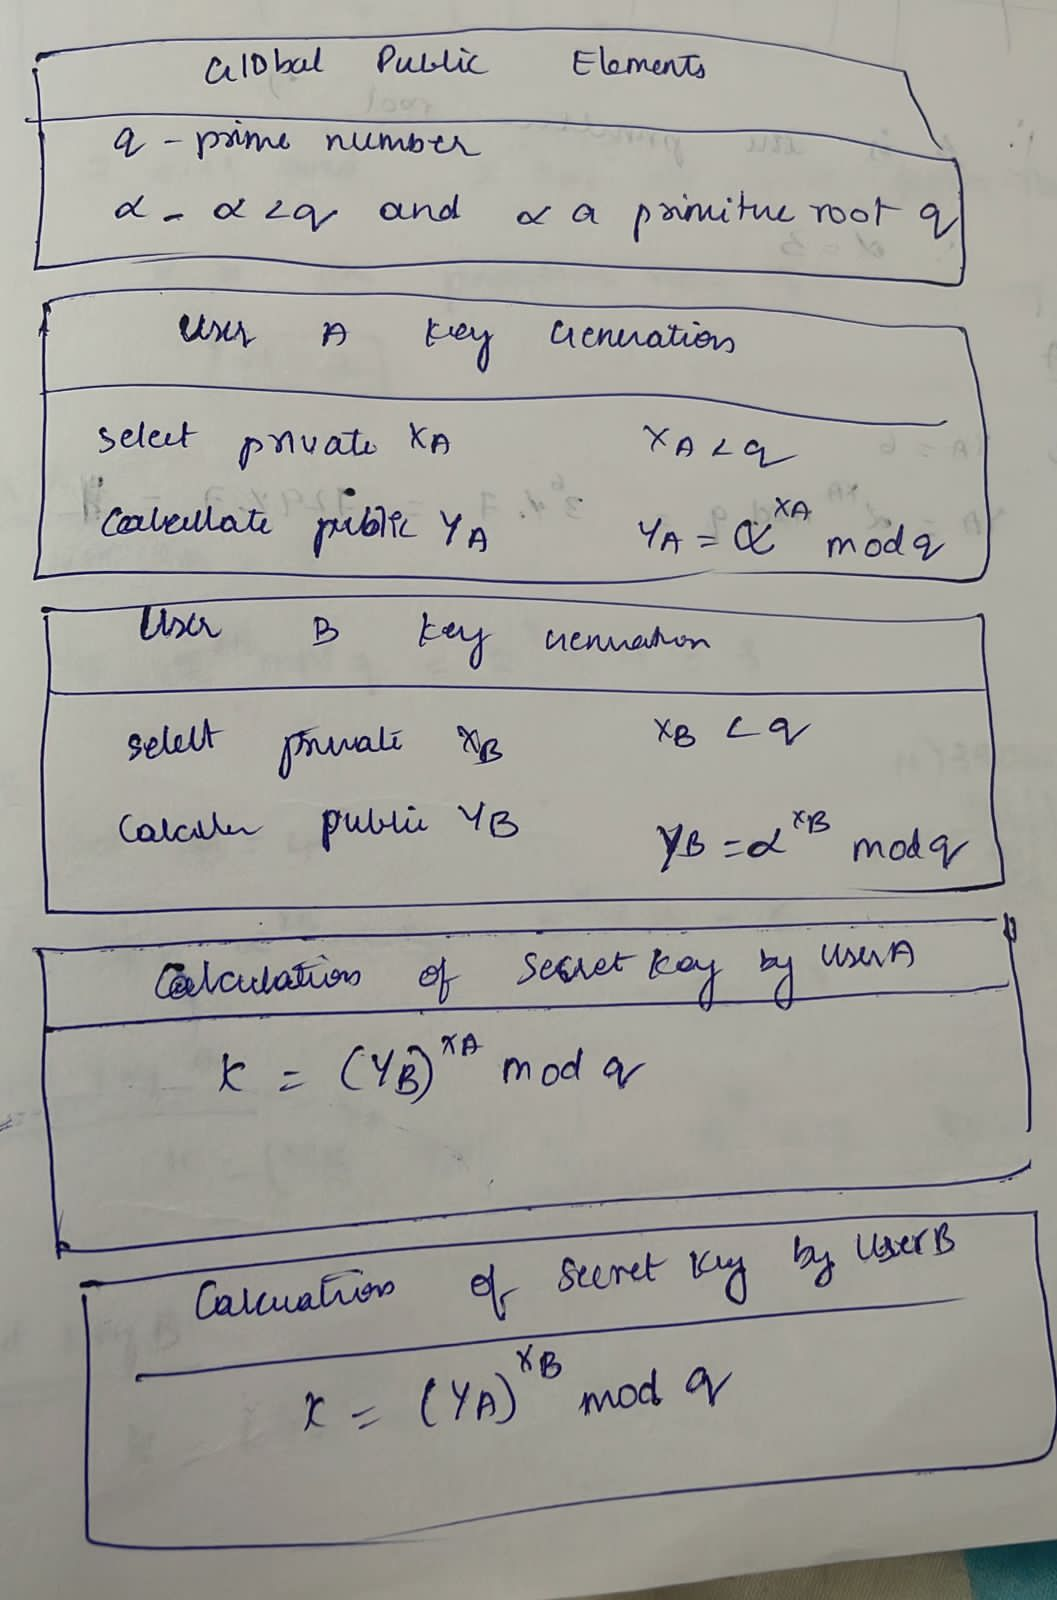 Global Public Elements
q - prime number
α - α < q and α a primitive root q
User A Key Generation
Select private XA XA < q
Calculate public YA YA = α^XA mod q
User B Key Generation
select private XB XB < q
public YB YB = α^XB mod q
Calculation of Secret Key by User A
K = (YB)^XA mod q
Calcuation of Secret Key by User B
K = (YA)^XB mod q